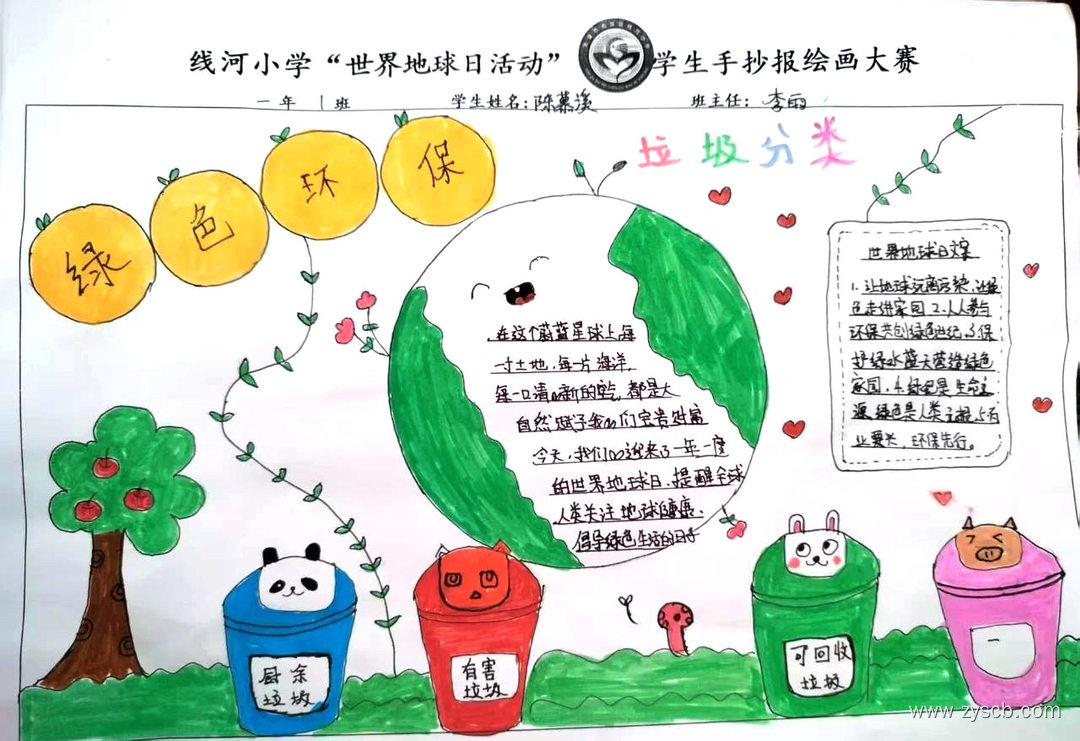 线河小学“世界地球日活动”学生手抄报绘画大赛
一年 1 班 学生姓名: 班主任: 李雨
绿色环保
垃圾分类
在这个蔚蓝星球上每
一寸土地，每一片海洋，
每一口清新的 都是大
自然赋予我们宝贵财富
今天，我们迎来了一年一度
的世界地球日，提醒全球
人类关注地球健康、
倡导绿色生活的日子
世界地球日文案
1. 让地球远离污染，让绿
色走进家园 2. 人人参与
环保共创绿色世纪 3 保
护绿水蓝天营造绿色
家园，4. 绿色是生命之
源 绿色是人类 5 百
业要兴，环保先行。
厨余
垃圾
有害
垃圾
可回收
垃圾
www.zyscb.com